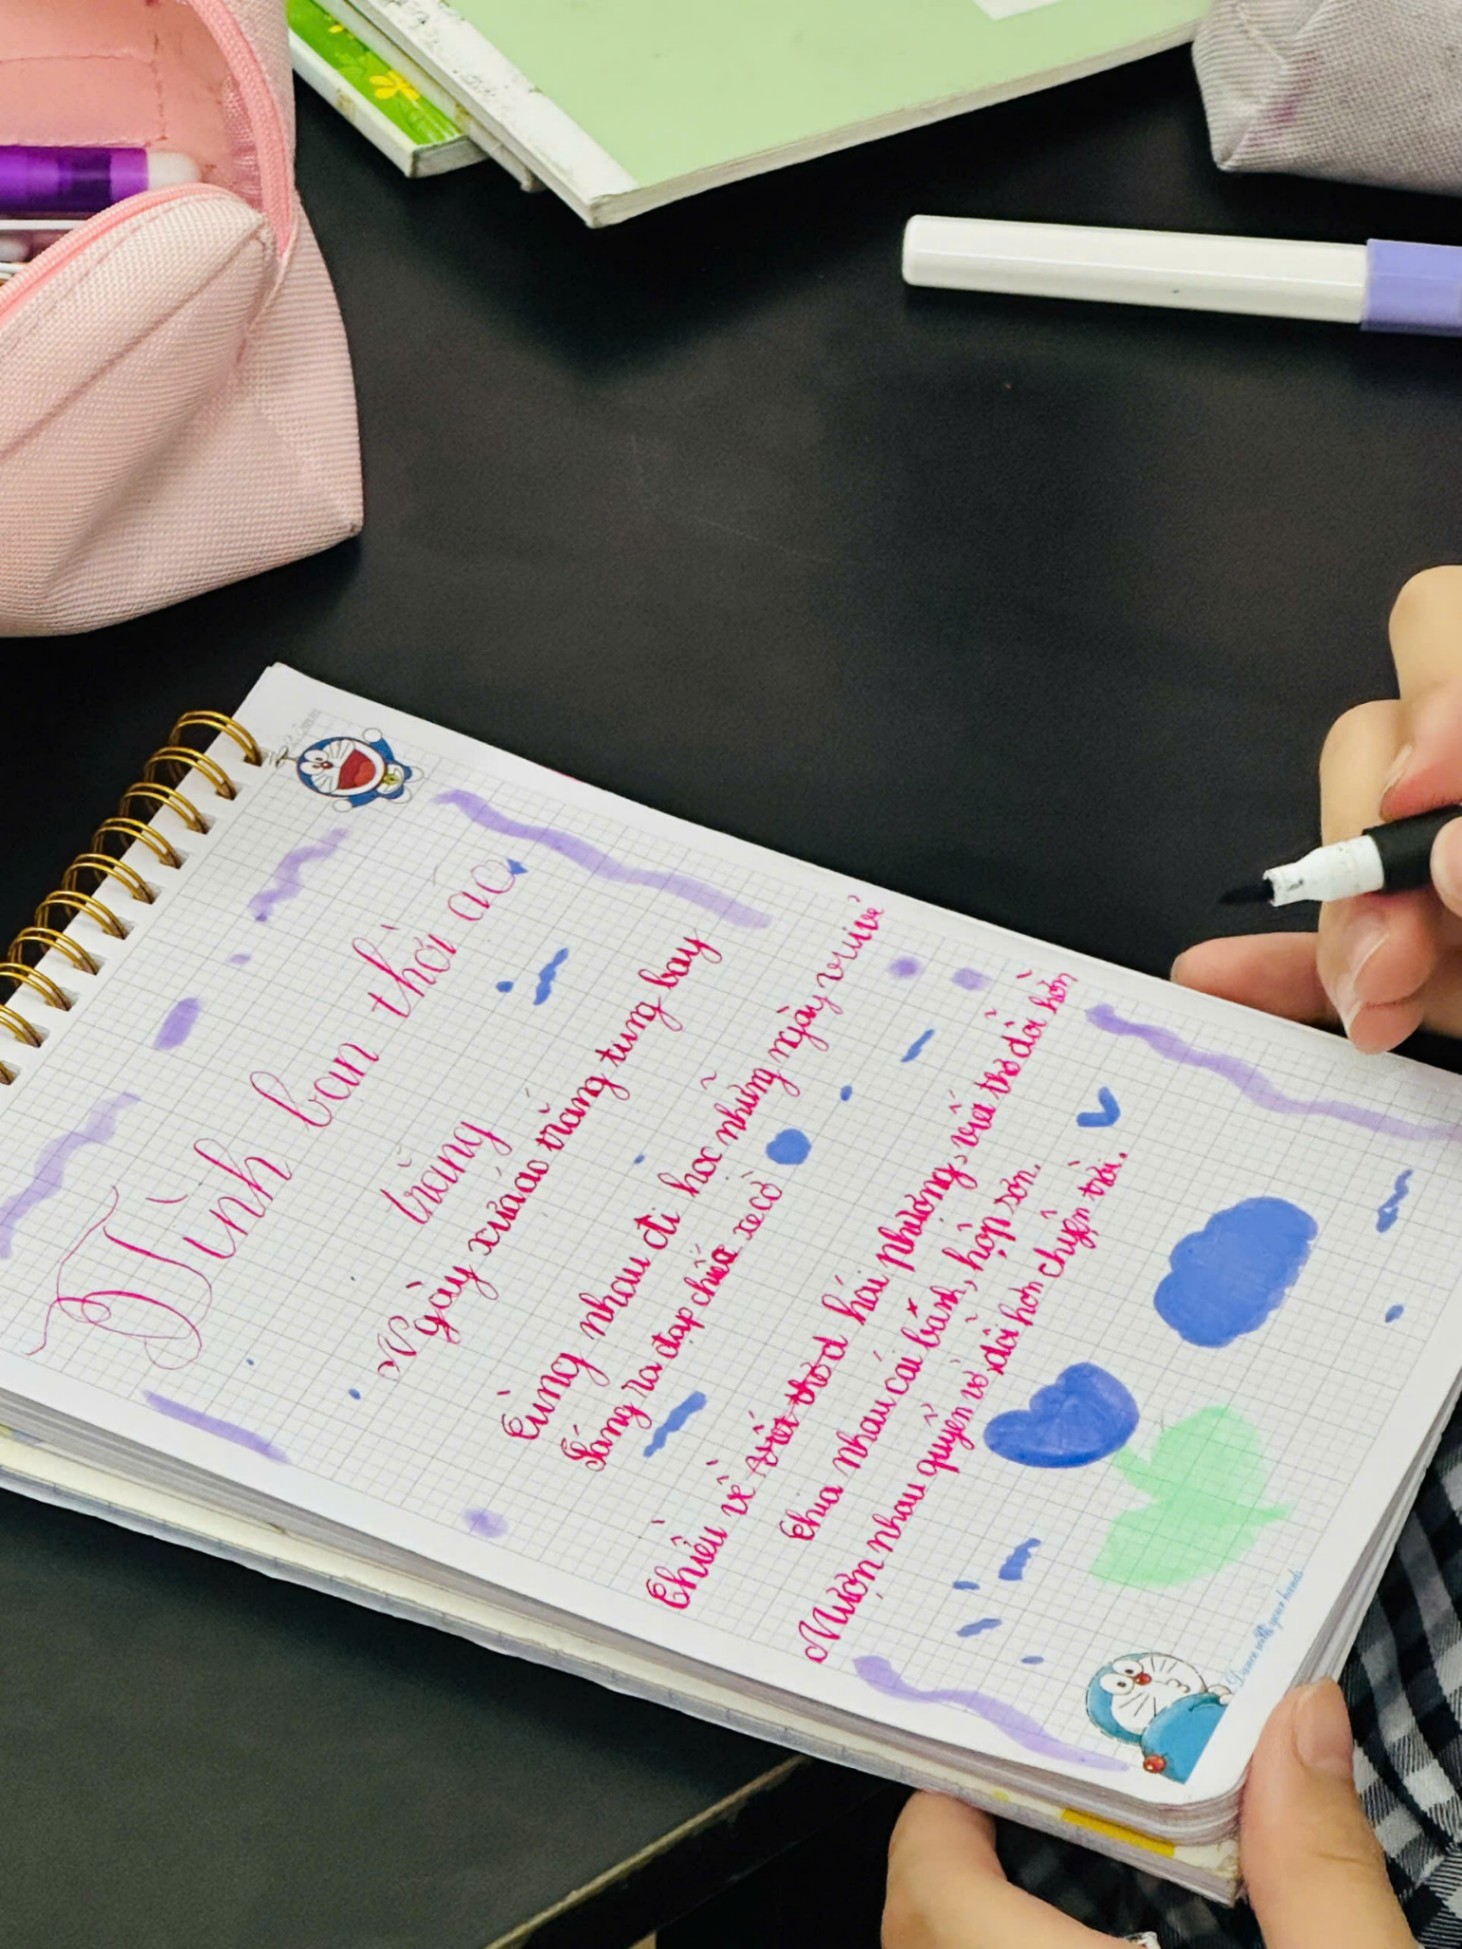 Tình bạn thời áo
trắng
Ngày xưa áo trắng tung bay
Cùng nhau đi học những ngày vui vẻ
Sáng ra đạp chiếc xe cờ
Chiều về viết thơ d hái phương, viết thơ dỗi hờn
Chia nhau cái bánh, hộp sơn.
Mượn nhau quyển vở, dỗi hờn chuyện trời.
Dance with your hands